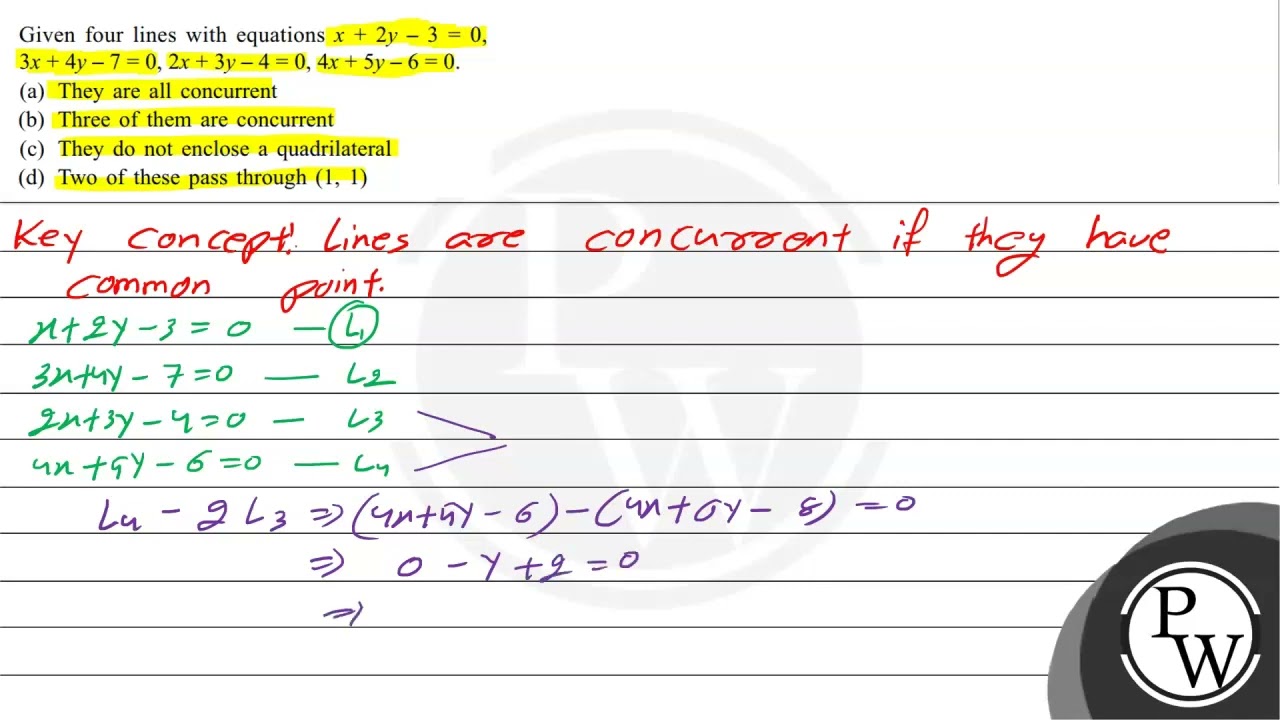 Given four lines with equations x + 2y – 3 = 0,
3x + 4y – 7 = 0, 2x + 3y – 4 = 0, 4x + 5y – 6 = 0.
(a) They are all concurrent
(b) Three of them are concurrent
(c) They do not enclose a quadrilateral
(d) Two of these pass through (1, 1)
Key concept: Lines are concurrent if they have
common point.
x+2y-3=0 — L1
3x+4y-7=0 — L2
2x+3y-4=0 — L3
4x+5y-6=0 — L4
L4 - 2L3 ⇒ (4x+5y-6)-(4x+6y-8)=0
⇒ 0-y+2=0
⇒
PW
PW